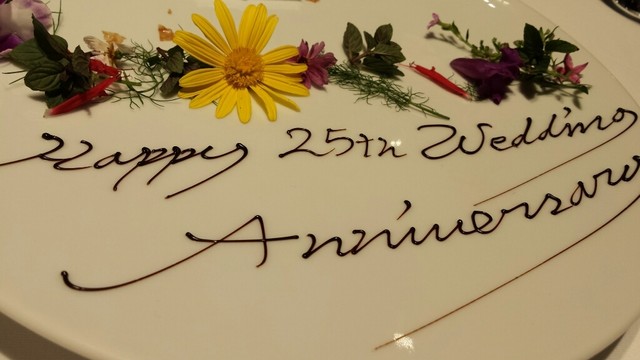 Happy 25th Wedding
Anniversary